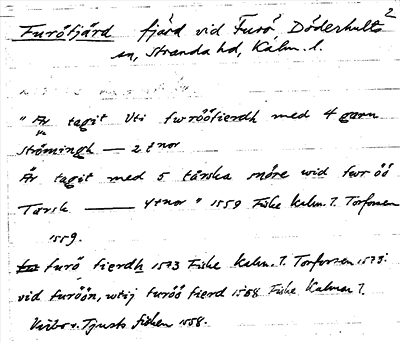 2
Furöfjärd fjärd vid Furö Döderhults
sn, Stranda hd, Kalm. l.
" Är tagit uti furöö fierdh med 4 garn
strömingh — 2 tnor
Är tagit med 5 tårska snöre wid furöö
Torsk — 4 tnor " 1559 Fiske Kalm. l. Torförsen
1559.
furö fierdh 1573 Fiske Kalm. l. Torförsen 1573.
vid furöön, utij furöö fierd 1558 Fiske Kalmar l.
Vesterv. Tjusts fisken 1558.